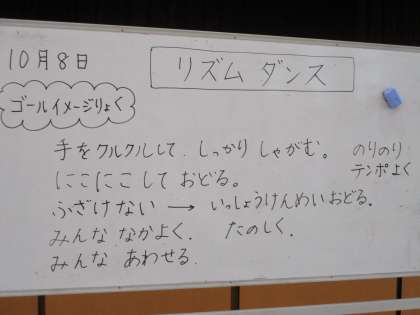 10月8日
リズム ダンス
ゴールイメージりょく
手をクルクルして しっかり しゃがむ。 のりのり
テンポよく
にこにこして おどる。
ふざけない → いっしょうけんめいおどる。
みんな なかよく、 たのしく、
みんな あわせる